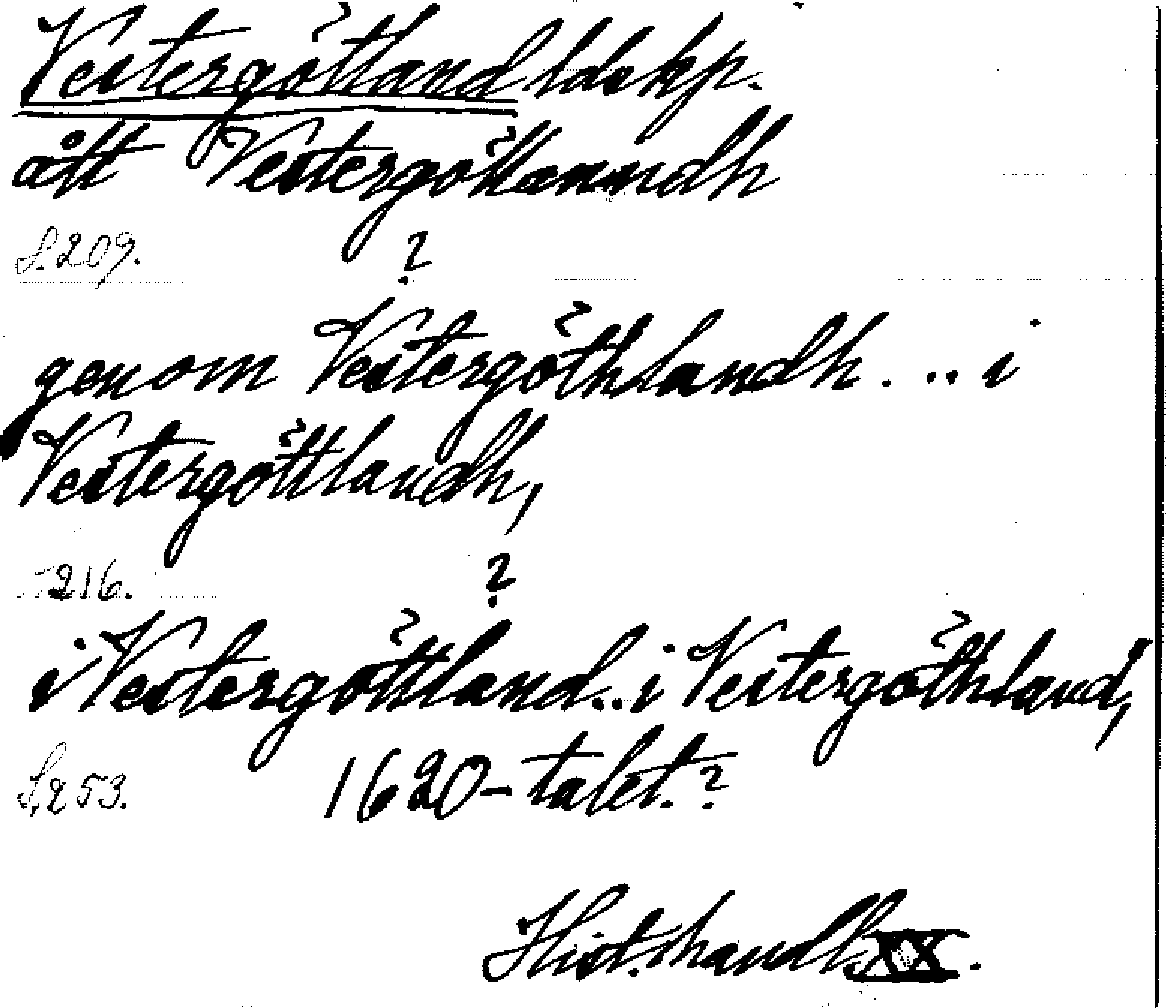 Vestergötland ldskp.
ått Vestergöttlanndh
S. 209. ?
genom Vestergöthlandh... i
Vestergöttlandh,
216. ?
i Vestergöttland.. i Vestergöthland,
S. 253. 1620-talet.?
Hist. handl. XX.